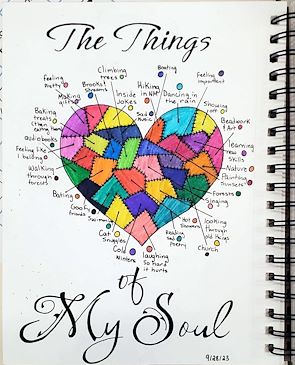 The Things
Climbing
trees
Boating
Feeling
pretty
Brooks &
streams
Hiking
in NM
Feeling
important
Making
gifts
Inside
Jokes
Dancing in
the rain
Sad
music
Showing
off
Baking
treats
(then
eating them)
Beadwork
& Art
audiobooks
learning
new
skills
Feeling like
I belong
Nature
Walking
through
forests
Painting
Sunsets
Forests
Eating
Singing
Good
friends
Swimming
Hot
Showers
looking
through
old things
Cat
Snuggles
Reading
sad
poetry
Church
Cold
Winters
laughing
so hard
it hurts
of
My Soul
9/28/23